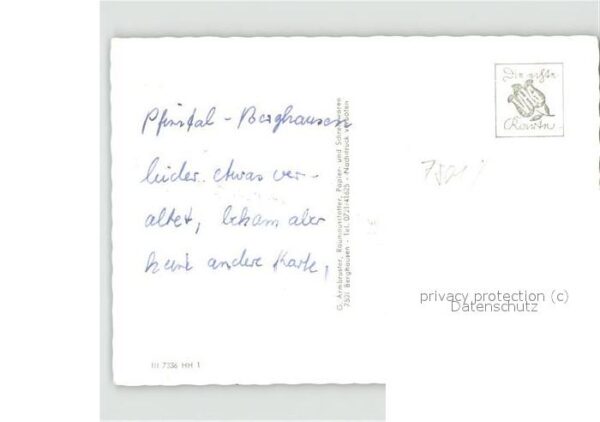 Pfinztal - Berghausen
leider etwas ver-
altet, bekam aber
keine andere Karte,
G. Armbruster, Raumausstatter, Papier- und Schreibwaren
7501 Berghausen - Tel. 0721-41625 - Nachdruck verboten
Die echte
VHG
Karte.
privacy protection (c)
Datenschutz
III 7336 HH 1